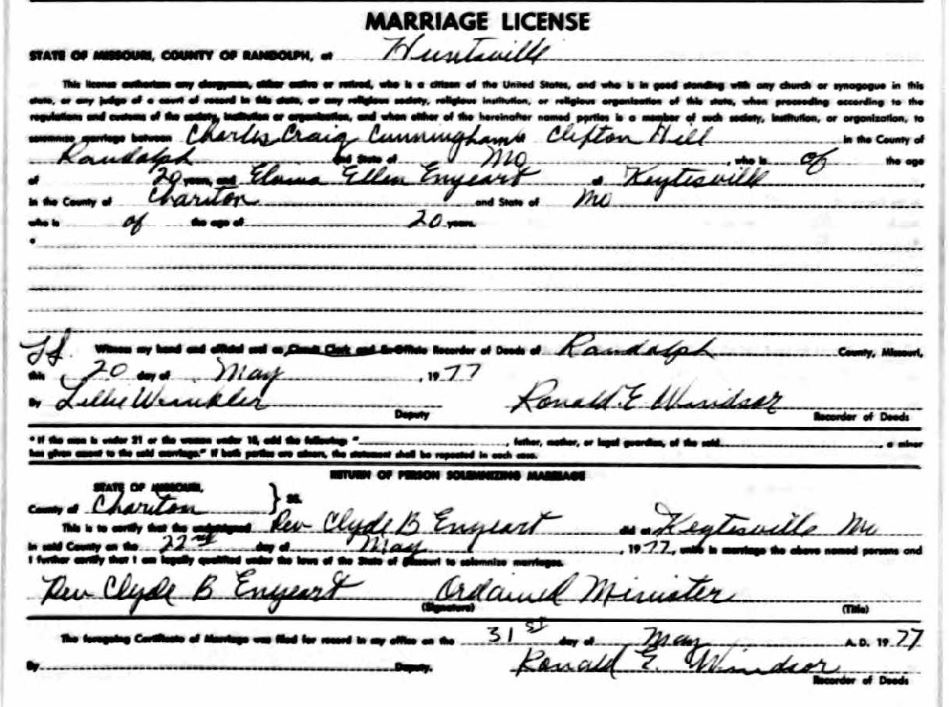 MARRIAGE LICENSE
STATE OF MISSOURI, COUNTY OF RANDOLPH, at Huntsville
This license authorizes any clergyman, either active or retired, who is a citizen of the United States, and who is in good standing with any church or synagogue in this
state, or any judge of a court of record in this state, or any religious society, religious institution, or religious organization of this state, when proceeding according to the
regulations and customs of the society, institution or organization, and when either of the hereinafter named parties is a member of such society, institution, or organization, to
solemnize marriage between Charles Craig Cunningham of Clifton Hill in the County of
Randolph and State of Mo, who is of the age
of 20 years, and Ellen Enyeart of Keytesville
in the County of Chariton and State of Mo
who is of the age of 20 years.
*
Witness my hand and official seal as Circuit Clerk and Ex-Officio Recorder of Deeds of Randolph County, Missouri,
this 20 day of May, 1977
By Lillie Winkler Deputy Ronald E. Windsor Recorder of Deeds
* If the man is under 21 or the woman under 18, add the following: "______, father, mother, or legal guardian, of the said______, a minor
has given assent to the said marriage." If both parties are minors, the statement shall be repeated in each case.
RETURN OF PERSON SOLEMNIZING MARRIAGE
STATE OF MISSOURI,
County of Chariton } SS.
This is to certify that the undersigned Rev Clyde B Enyeart did at Keytesville Mo
in said County on the 22nd day of May, 1977, unite in marriage the above named persons and
I further certify that I am legally qualified under the laws of the State of Missouri to solemnize marriages.
Rev Clyde B Enyeart Ordained Minister
(Signature) (Title)
The foregoing Certificate of Marriage was filed for record in my office on the 31st day of May A.D. 1977
By Deputy. Ronald E. Windsor
Recorder of Deeds